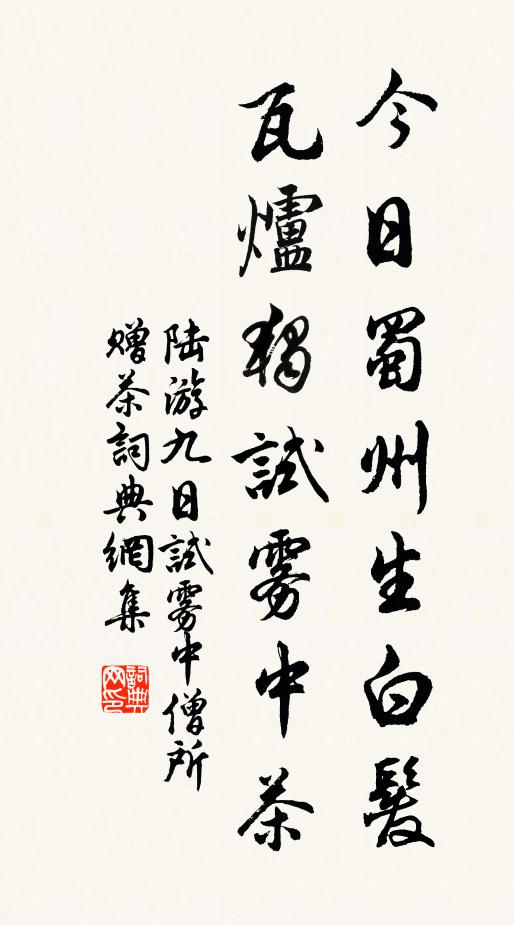 今日蜀州生白髮
瓦爐獨試霧中茶
陸游九日試霧中僧所
贈茶詞典網集
詞典網印